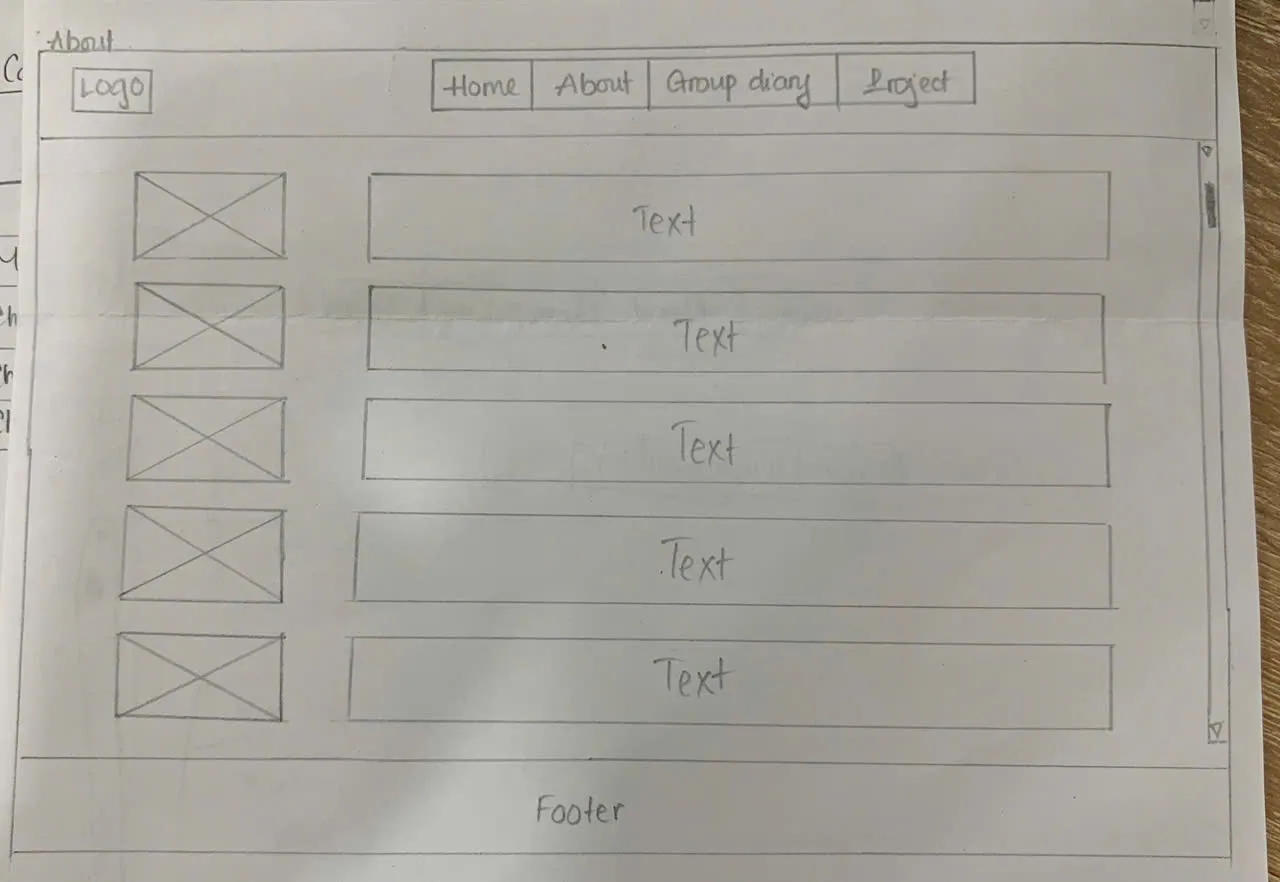 About
Logo
Home About Group diary Project
Text
Text
Text
Text
Text
Footer